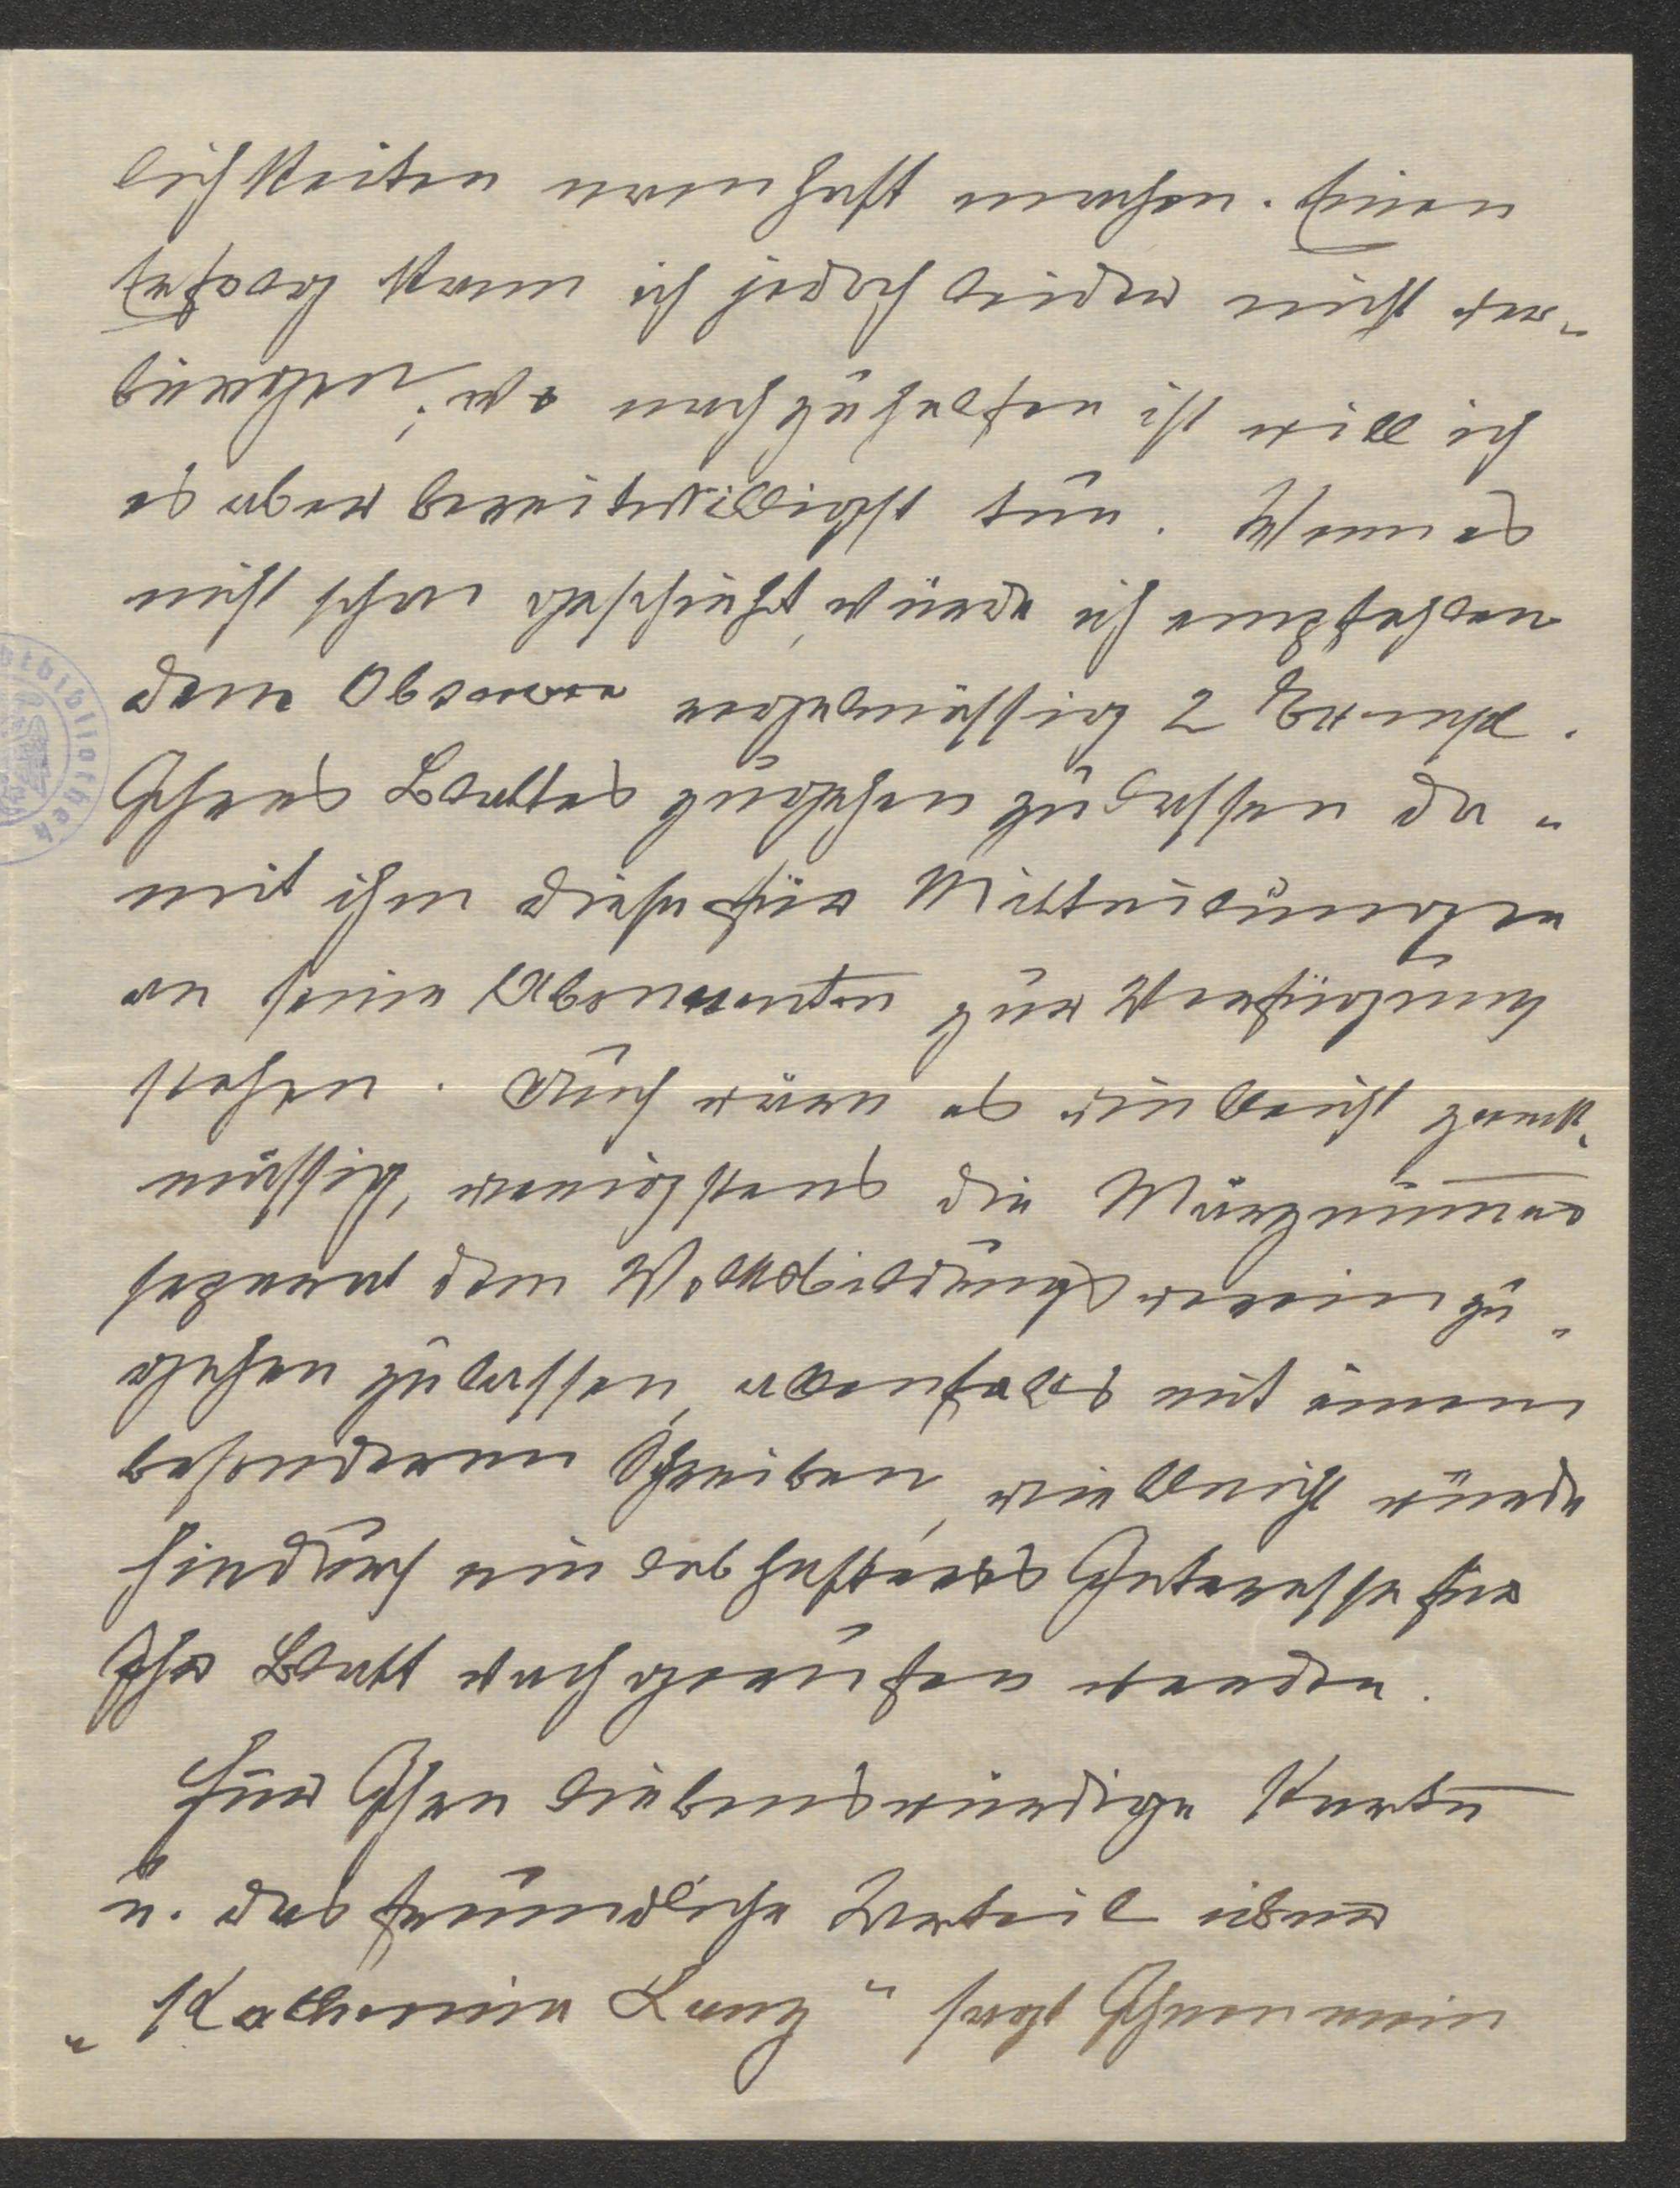 lichkeiten namhaft machen. Einen
Erfolg kann ich jedoch leider nicht ver-
bürgen; wo nachzuhelfen ist will ich
es aber bereitwilligst tun. Wenn es
nicht schon geschieht, würde ich empfehlen
dem Observer regelmässig 2 Exempl.
Ihres Blattes zugehen zu lassen da-
mit ihm diese für Mitteilungen
an seine Abonnenten zur Verfügung
stehen. Auch wäre es vielleicht zweck-
mässig, wenigstens die Märznummer
separat dem Volksbildungsverein zu-
gehen zu lassen, allenfalls mit einem
besonderen Schreiben, vielleicht würde
hiedurch ein lebhafteres Interesse für
Ihr Blatt wachgerufen werden.
Für Ihre liebenswürdige Karte
u. das freundliche Urteil über
"Katharina Lanz" sagt Ihnen mein
bibliothek